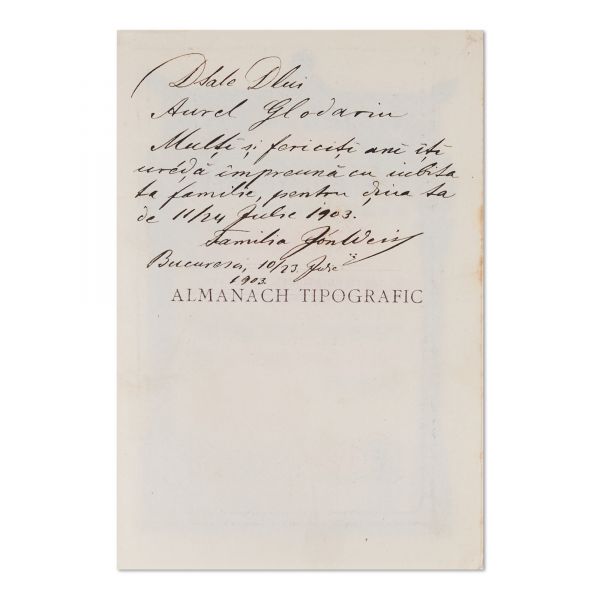 Dsale Dlui
Aurel Glodariu
Mulți și fericiți ani îți
urédă împreună cu iubita
ta familie, pentru ḑiua ta
de 11/24 Julie 1903.
Familia Jón Weiss
Bucuresci, 10/23 Julie
1903.
ALMANACH TIPOGRAFIC